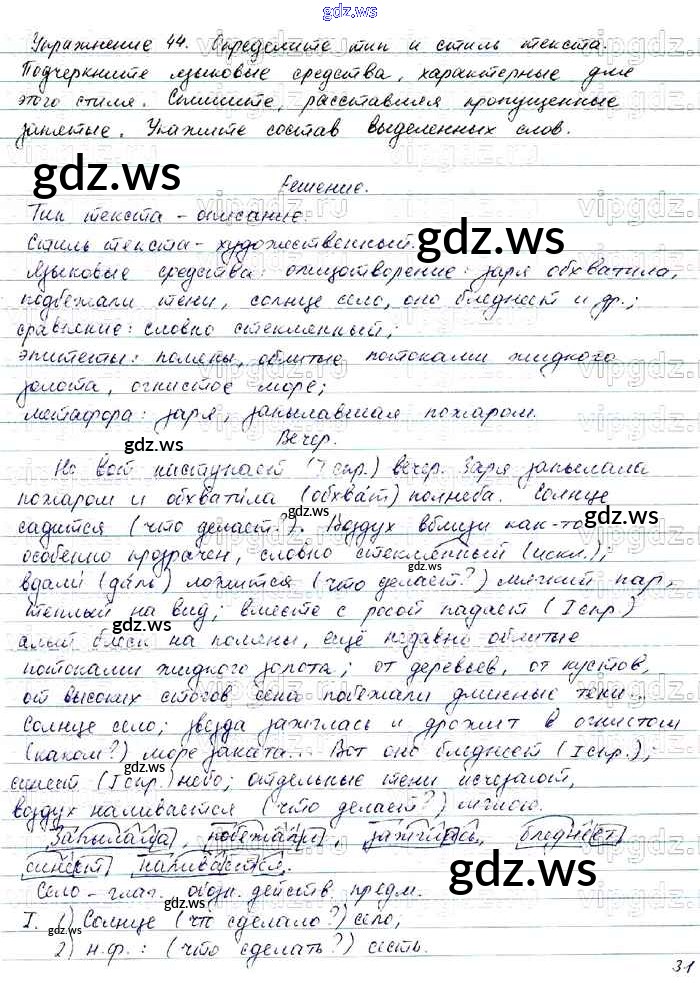 gdz.ws
Упражнение 44. Определите тип и стиль текста.
Подчеркните языковые средства, характерные для
этого стиля. Спишите, расставляя пропущенные
запятые. Укажите состав выделенных слов.
gdz.ws
Решение.
Тип текста – описание.
Стиль текста – художественный.
gdz.ws
Языковые средства: олицетворение: заря обхватила,
подбежали тени, солнце село, оно бледнеет и др.;
сравнение: словно стеклянный;
эпитеты: поляны, облитые потоками жидкого
золота, огнистое море;
метафора: заря, запылавшая пожаром.
Вечер.
gdz.ws
Но вот наступает (I спр.) вечер. Заря запылала
пожаром и обхватила (обхват) полнеба. Солнце
садится (что делает?). Воздух вблизи как-то
gdz.ws
особенно прозрачен, словно стеклянный (искл.);
вдали (даль) ложится (что делает?) мягкий пар,
тёплый на вид; вместе с росой падает (I спр.)
gdz.ws
алый блеск на поляны, ещё недавно облитые
потоками жидкого золота; от деревьев, от кустов,
от высоких стогов сена побежали длинные тени...
gdz.ws
Солнце село; звезда зажглась и дрожит в огнистом
(каком?) море заката... Вот оно бледнеет (I спр.);
gdz.ws
синеет (I спр.) небо; отдельные тени исчезают,
воздух наливается (что делает?) мглою.
gdz.ws
Запылала, побежали, зажглась, бледнеет,
синеет, наливается.
gdz.ws
Село – глаг. обозн. действ. предм.
I. 1) Солнце (что сделало?) село;
2) н.ф.: (что сделать?) сесть.
gdz.ws
31